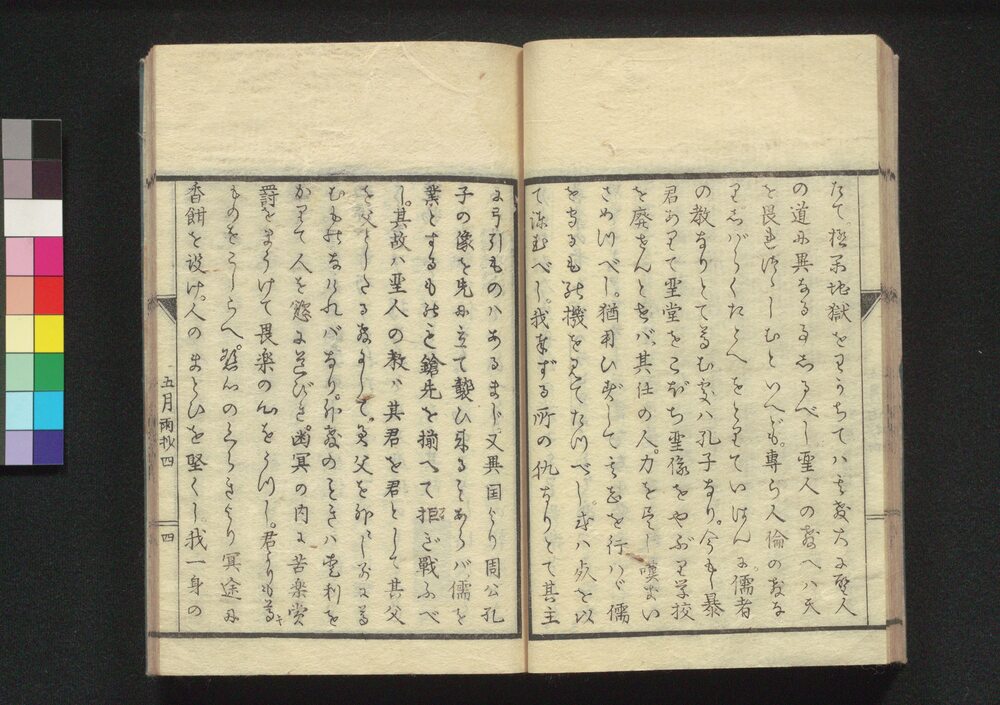 たて、極楽地獄をわかちてハ其教大に聖人
の道に異なる事しるべし聖人の教へハ天
を畏れ给しむといへども。専ら人倫の教な
り。しバらくたとへをとりていはんに。儒者
の教なりとて尊む処ハ孔子なり。今もし暴
君ありて聖堂をこぼち聖像をやぶり学校
を廃せんとせバ、其仕の人。力を尽し嘆きい
さめつべし。猶用ひずして其志を行ハゞ儒
を守るもの機を見てたつべし。或ハ死を以
て諌むべし。我奉ずる所の仇なりとて其主
に弓引ものハあるまじ。又異国より周公孔
子の像を先に立て襲ひ来ることあらバ儒を
業とするもの
も鎗先を揃へて拒ぎ戦ふべ
し。其故ハ聖人の教ハ其君を君として其父
を父としたる教にして。
むものなけれバなり。
かりて人を
に
びき。幽冥の内に苦楽賞
罸をまうけて畏楽の心をうつし。君よりも尊キ
ものをこしらへ。
冥途に
香餌を設け。人のまとひを堅くし。我一身の
五月雨抄四
四